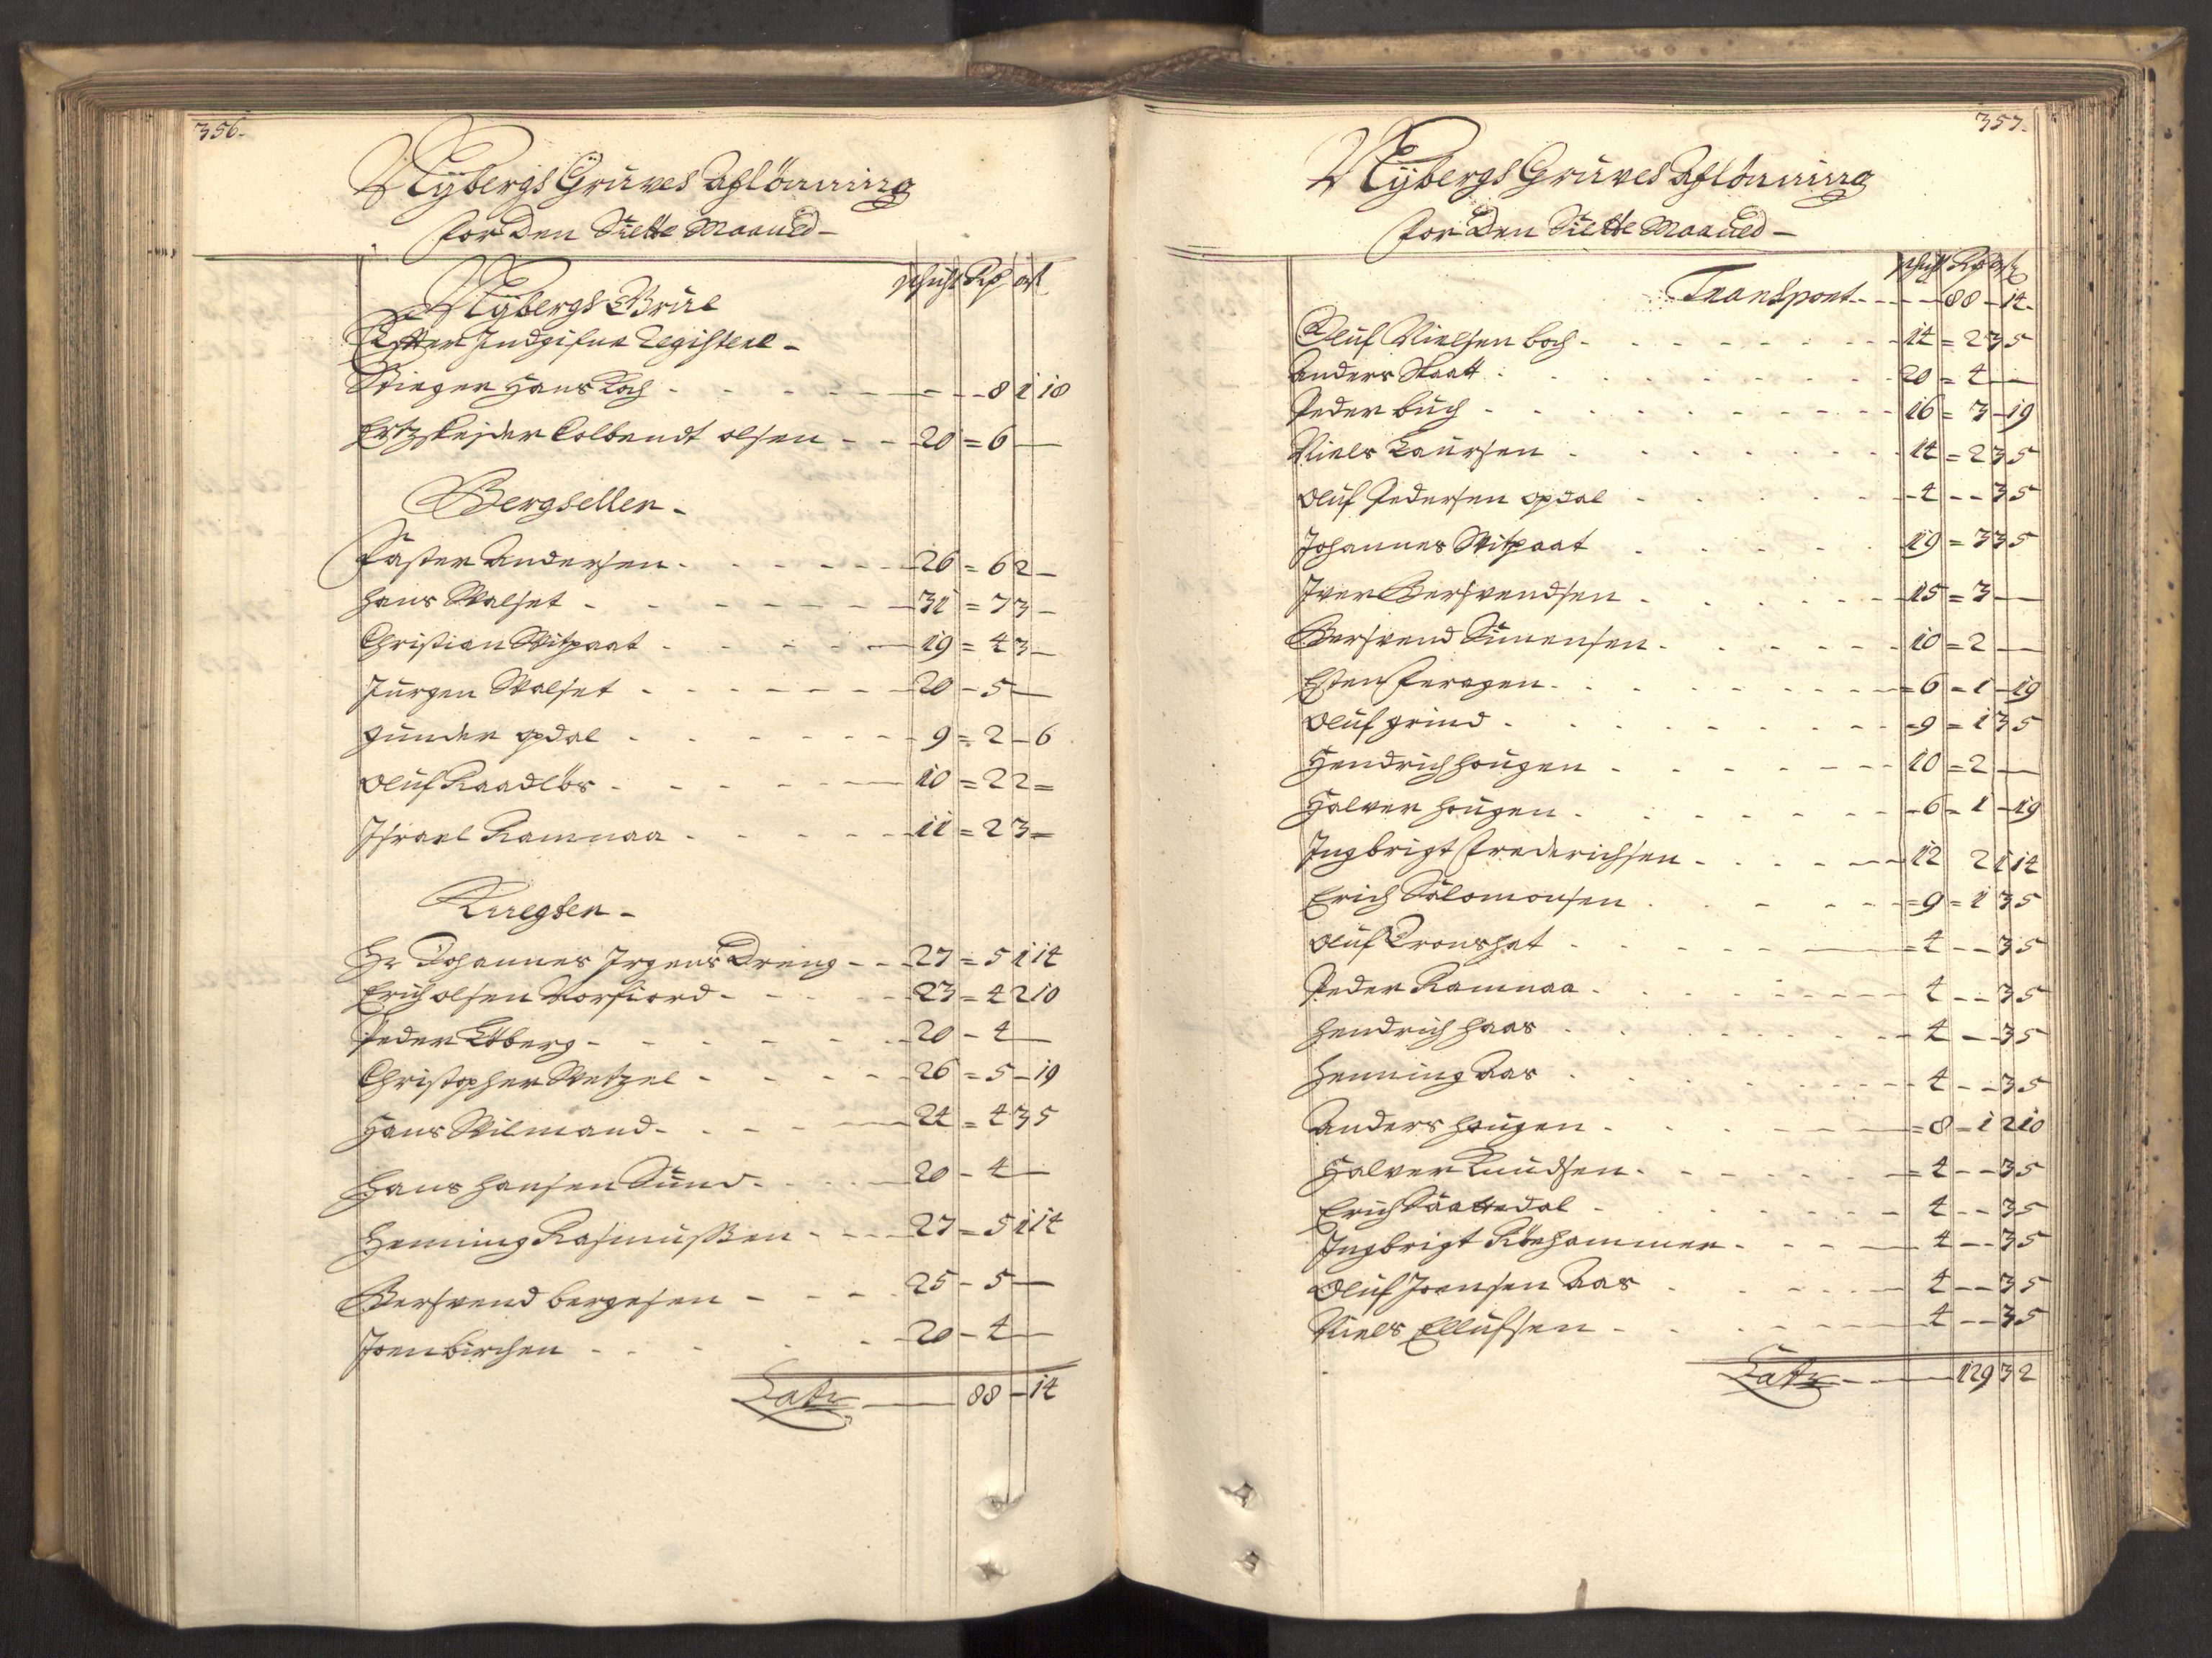 356.
Nÿbergs Gruves Aflönning
for Den Siette Maaned -
schicht Rd ort ß
Nÿbergs Grube
Efter Indgifne Registere -
Stieger Hans Koch - - - 8 1 18
Ertzskejder Colbendt olsen - - 20 = 6 -
Bergseller -
Faster Andersen - - 26 = 6 2 -
Hans Walset - - 31 = 7 3 -
Christian Witpaat - - 19 = 4 3 -
Jürgen Walset - - 20 - 5 -
Gunder opdal - - 9 = 2 - 6
Oluf Raadlös - - 10 = 2 2 =
Israel Ramnaa - - 11 = 2 3 =
Knegter -
Hr Johannes Irgens Dreng - - 27 = 5 1 14
Erich olsen Norfiord - - 23 = 4 2 10
Peder Etberg - - 20 - 4 -
Christopher Wetzel - - 26 = 5 - 19
Hans Wilmand - - 24 = 4 3 5
Hans Hansen Sund - - 20 - 4 -
Henning Rasmussen - - 27 = 5 1 14
Bersvend bergesen - - 25 - 5 -
Joen birchen - - 20 - 4 -
Latr - 88 - 14
357.
Nÿbergs Gruves Aflönning
for Den Siette Maaned -
schicht Rd ort ß
Transport - - 88 - 14 -
Oluf Nielsen boch - - 14 = 2 3 5
Anders Staatt - - 20 = 4 -
Peder buch - - 16 = 3 - 19
Niels Laursen - - 14 = 2 3 5
Oluf Pedersen opdal - - 4 - - 3 5
Johannes Witpaat - - 19 = 3 3 5
Iver Bersvendsen - - 15 = 3 -
Bersvend Simensen - - 10 = 2 -
Esten Feragen - - 6 = 1 - 19
Oluf grind - - 9 = 1 3 5
Hendrich Hougen - - 10 = 2 -
Halver Hougen - - 6 = 1 - 19
Ingbrigt Frederichsen - - 12 2 1 14
Erich Salomonsen - - 9 = 1 3 5
Oluf Cronshat - - 4 - - 3 5
Peder Ramnaa - - 4 - - 3 5
Hendrich Haas - - 4 - - 3 5
Henning Aas - - 4 - - 3 5
Anders Hougen - - 8 - 1 2 10
Halver Knudsen - - 4 - - 3 5
Erich Saattedal - - 4 - - 3 5
Ingbrigt Röehammer - - 4 - - 3 5
Oluf Joensen Aas - - 4 - - 3 5
Niels Ellufsen - - 4 - - 3 5
Latr - 129 3 2